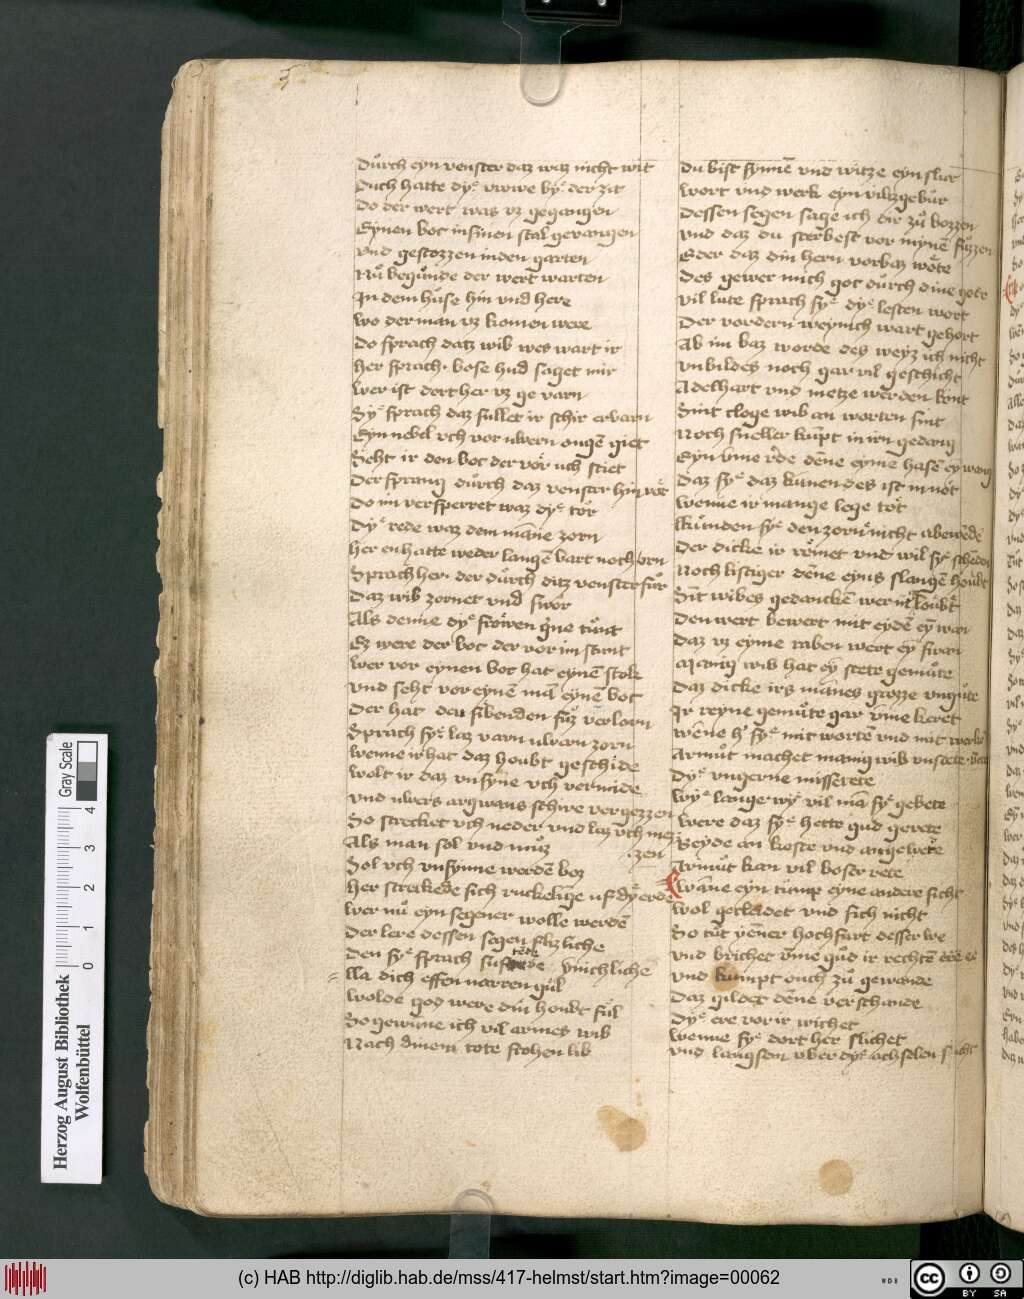 3
Durch eyn venster daz waz nicht wit
Duch hatte dye vrowe bye der zit
Do der wert was vz gegangen
Eynen boc in sinen stal gevangen
vnd gestozzen in den garten
Nu begunde der wert warten
In dem huse hin vnd here
wo der man vz komen were
Do sprach datz wib wes wart ir
her sprach bose hud saget mir
wer ist dort her vz ge varn
Sye sprach daz sullet ir schir ervarn
Eyn nebel vch vor uwern ougen giet
Seht ir den boc der vor uch stiet
Der sprang durch daz venster hin vor
Do im versperret waz dye tor
Dye rede waz dem manne zorn
her en hatte weder langen bart noch horn
Sprach her der durch ditz venster fur
Daz wib zornet vnd swor
Als denne dye frowen gerne tunt
Ez were der boc der vor im stunt
wer vor eynen boc hat eynen stok
vnd seht vor eynen man eynen boc
Der hat den sibenden sin verlorn
Sprach sye laz varn uwern zorn
wenne ir hat daz houbt geschide
wolt ir daz vnsynne vch vermide
vnd uwers argwans schire vergezzen
So strecket vch neder vnd laz vch mez
zen
Als man sol vnd muz
Sol vch vnsynne werden boz
her streckede sich ruckelinge uf dye erde
wer nu eyn segener wolle werden
Der lere dessen segen flizliche
Den sye sprach sufftede ynnichliche
lla dich effen narren gul
wolde god were din houbt ful
So gewinne ich vil armes wib
Nach dinem tote stohen lib
Du bist synnen vnd witze eyn slur
wort vnd werk eyn vilzgebur
Dessen segen sage ich dir zu bozzen
vnd daz du sterbest vor mynen fuzzen
Eder daz din hern vorbaz wote
Des gewer mich got durch dine gote
vil lute sprach sye dye lesten wort
Der vordern weynich wart gehort
Ab im baz worde des weyz ich nicht
vnbildes noch gar vil geschicht
Adelhart vnd metze werden kont
Sint cloge wib an worten sint
Noch sneller kumpt in irn gedang
Eyn vmme rede denne eyme hasen ey wang
Daz sye daz kunen des ist in not
wenne ir mange lege tot
Kunden sye den zorn nicht abewende
Der dicke ir romet vnd wil sye schenden
Noch listiger denne eynis slangen houbt
Sint wibes gedancken wer mir loubt
Den wert bewert mit eyden ey war
Daz vz eyme raben wert ey swan
Manig wib hat ey stete gemute
Daz dicke irs mannes grozze vngute
Ir reyne gemute gar vmme keret
wenne her sye mit worten vnd mit werken
Armut machet manig wib vnstete
Dye vngerne missetete
wye lange wye vil man sye gebete
were daz sye hette gud gerete
Beyde an koste vnd an gebete
Armut kan vil boser rete
wanne eyn tump eyne andere sicht
wol gecleidet vnd sich nicht
So tut yener hochfart desser we
vnd brichet vmme gud ir rechten ee
vnd kumpt ouch zu gewande
Daz gildet denne verschande
Dye ere vor ir wichet
wenne sye dort her slichet
vnd langsem vber dye achselen sicht
Herzog August Bibliothek
Wolfenbüttel
0 1 2 3 4
Gray Scale
(c) HAB http://diglib.hab.de/mss/417-helmst/start.htm?image=00062
WDB
cc BY SA